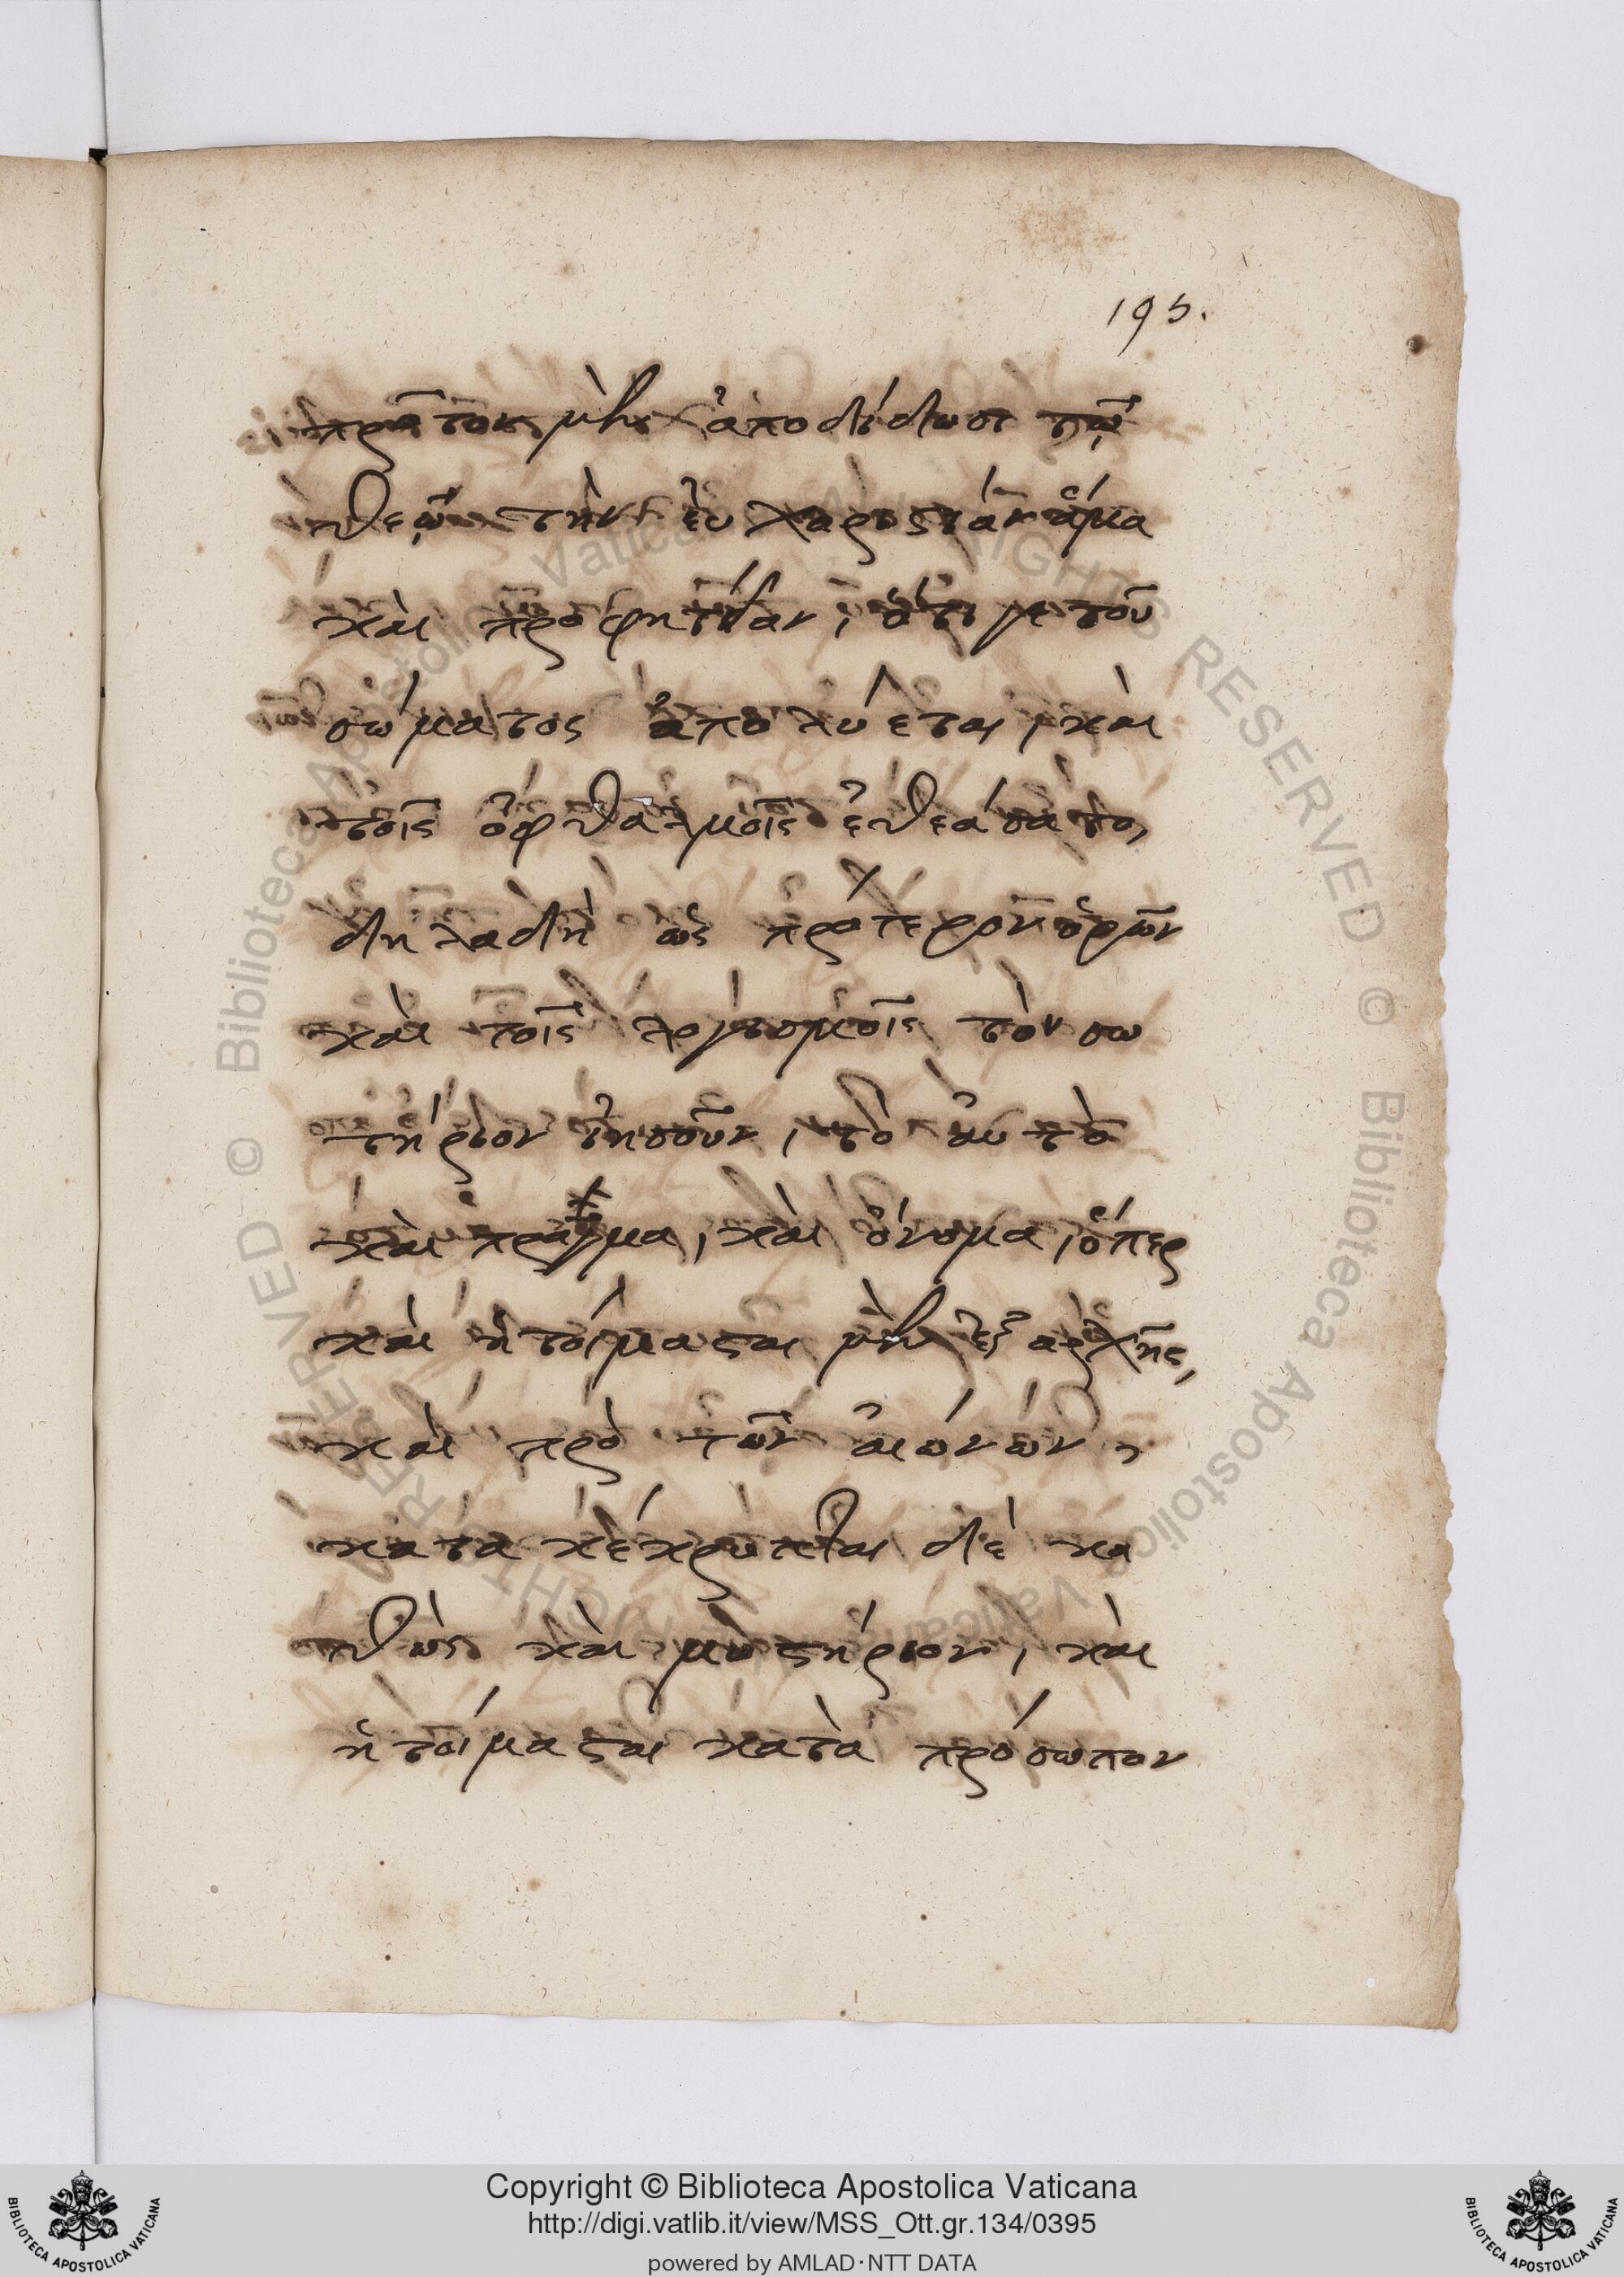 195.
πρῶτον μὲν ἀποδίδωσι τῷ
θεῷ τὴν εὐχαριστίαν ἅμα
καὶ προφητείαν, ὅτι γε τοῦ
σώματος ἀπολύεται, καὶ
τοῖς ὀφθαλμοῖς ἐθεάσατο,
δηλαδὴ ὡς πρότερον ὁρῶν
καὶ τοῖς λογισμοῖς τὸν σω
τήριον ἰησοῦν, τὸ αὐτὸ
καὶ πράγμα, καὶ ὄνομα, ὅπερ
καὶ ἡτοίμασται μὲν ἐξ αρχῆς,
καὶ πρὸ τῶν αἰώνων,
κατα κέκρυπται δὲ κα
θὼς καὶ μυστήριον, καὶ
ἡτοίμασται κατὰ πρόσωπον
Copyright © Biblioteca Apostolica Vaticana
http://digi.vatlib.it/view/MSS_Ott.gr.134/0395
powered by AMLAD·NTT DATA
BIBLIOTECA APOSTOLICA VATICANA
BIBLIOTECA APOSTOLICA VATICANA
© Biblioteca Apostolica Vaticana ALL RIGHTS RESERVED © Biblioteca Apostolica Vaticana ALL RIGHTS RESERVED